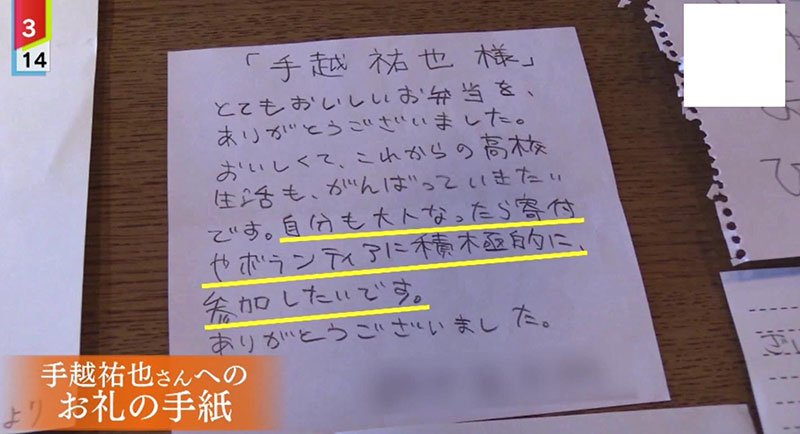 3
14
「手越 祐也 様」
とてもおいしいお弁当を、
ありがとうございました。
おいしくて、これからの高校
生活も、がんばっていきたい
です。自分も大人なったら寄付
やボランティアに積極的に、
参加したいです。
ありがとうございました。
手越祐也さんへの
お礼の手紙
より